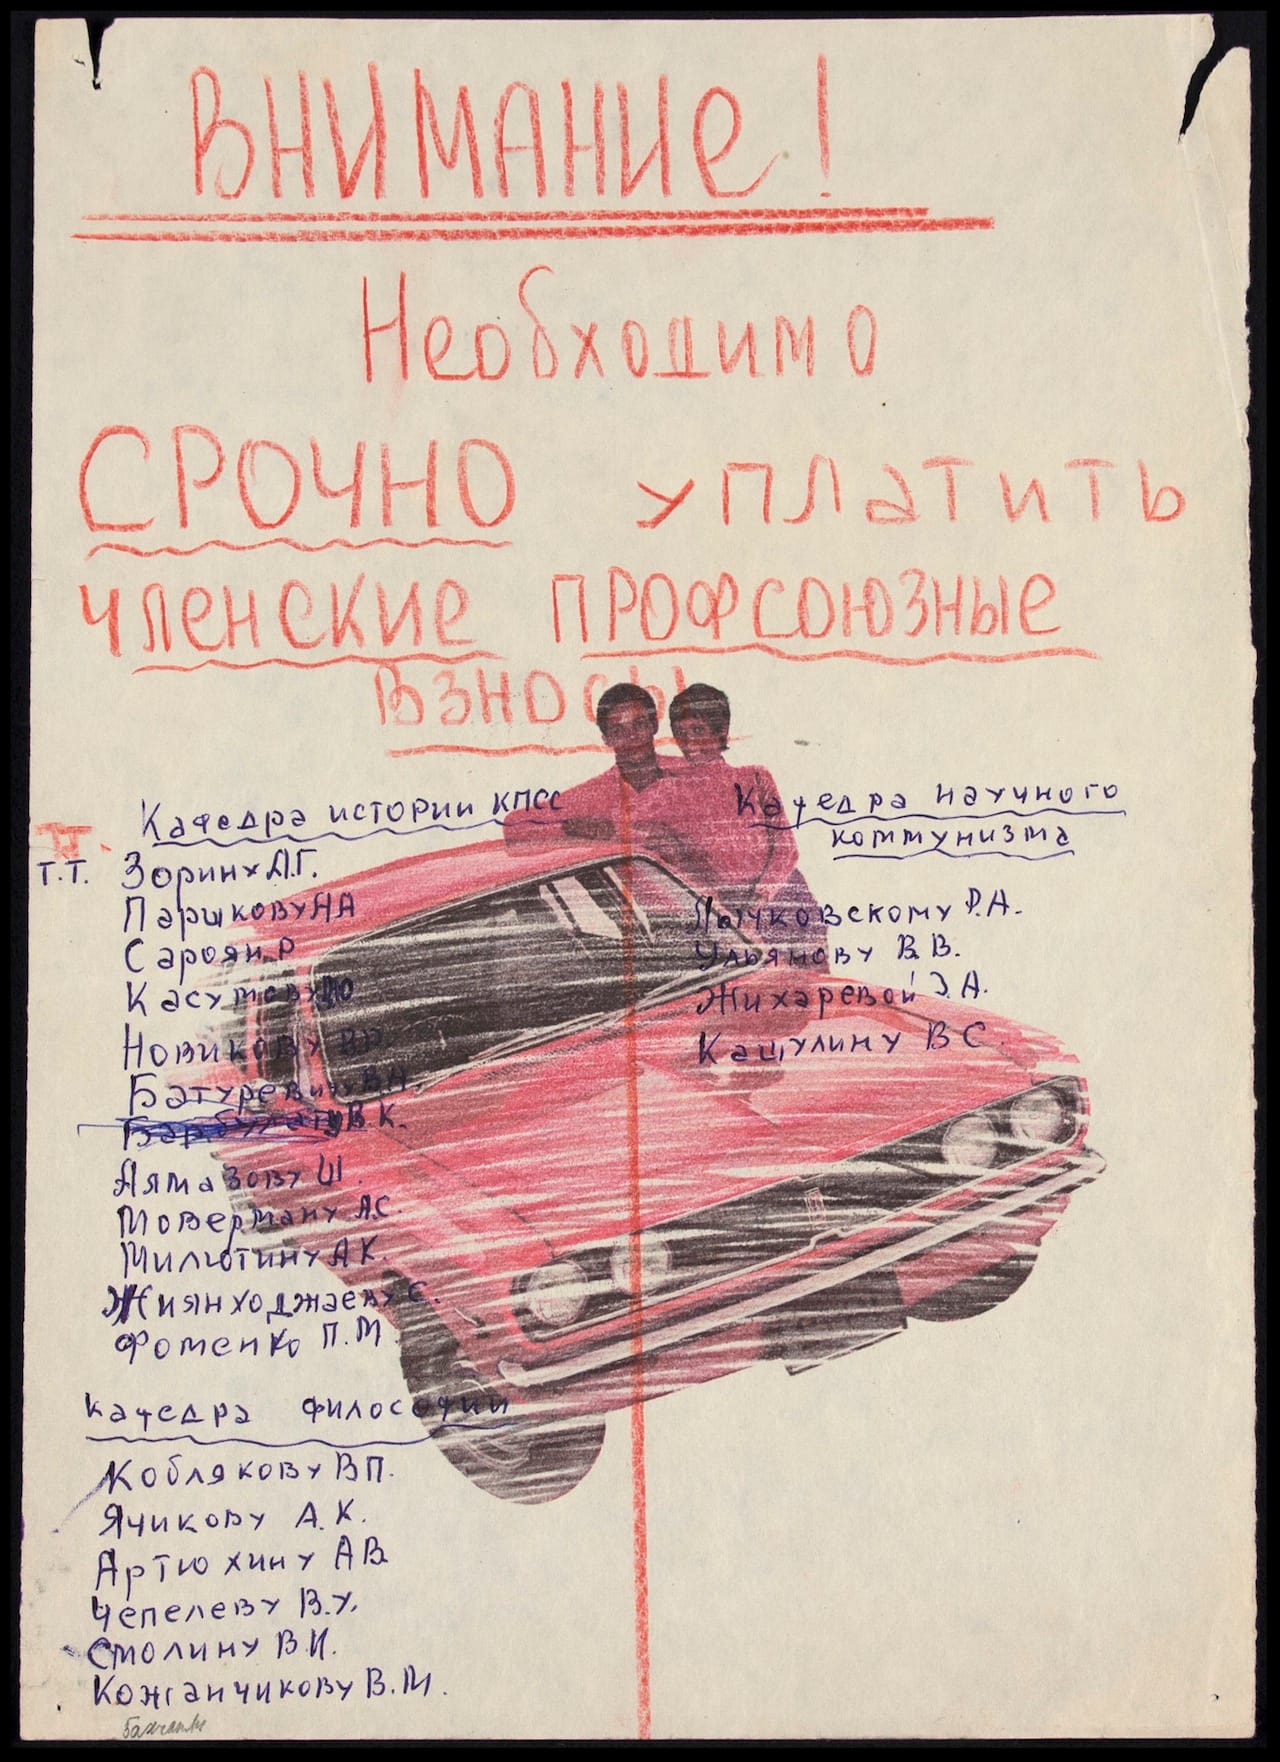 ВНИМАНИЕ!
Необходимо
СРОЧНО уплатить
членские профсоюзные
взносы
Кафедра истории КПСС
Т.Т.
Т.Т. Зорину А.Г.
Паршкову АА
Сароян Р
Касумову Ю
Новикову В
Батуревичу В.Н.
В.К.
Алмазову Ш.
Моверману А.С.
Милютину А К.
Жиянходжаеву С.
Фоменко П.М.
Кафедра философии
Коблякову В П.
Ячикову А.К.
Артюхину А В
Чепелеву В.У.
Смолину В И.
Кожганчикову В.М.
Кафедра научного
коммунизма
Лычковскому Р.А.
Ульянову В В.
Жихаревой Э.А.
Кашулину В С.